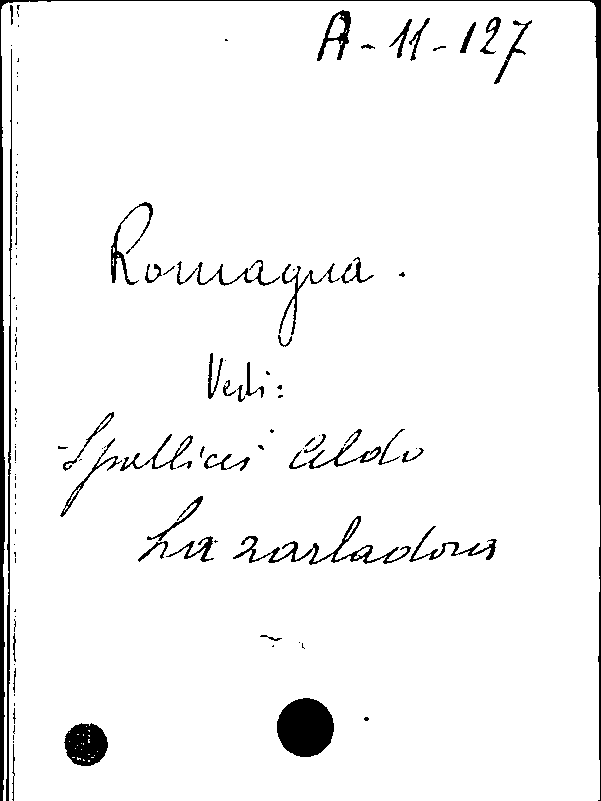 A-11-127
Romagna.
Vedi:
- Spallicci Aldo
La zarladora